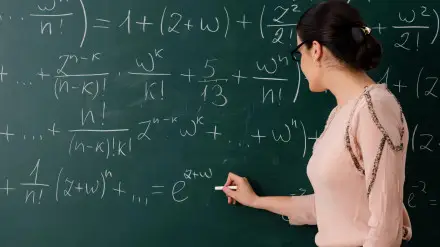 w^n/n! ) = 1 + (z+w) + ( z^2/2! w^2/2! )
+ ... + z^{n-k}/(n-k)! · w^k/k! + 5/13 + w^n/n! ) +
+ ... + n!/(n-k)!k! z^{n-k} w^k + ... + w^n )
+ 1/n! (z+w)^n + ... = e^{z+w}